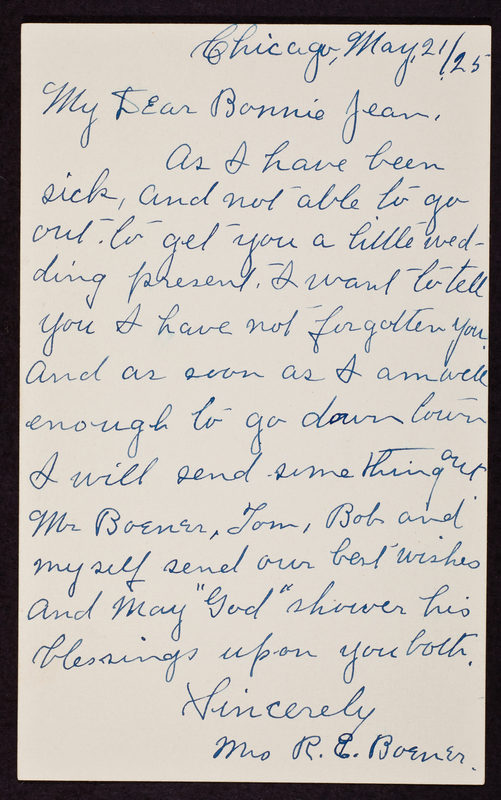 Chicago, May, 21/25
My Dear Bonnie Jean,
As I have been
sick, and not able to go
out to get you a little wed-
ding present, I want to tell
you I have not forgotten you.
and as soon as I am well
enough to go down town
I will send something out
Mr Boener, Tom, Bob and
myself send our best wishes
and May "God" shower his
blessings upon you both.
Sincerely
Mrs R. E. Boener.